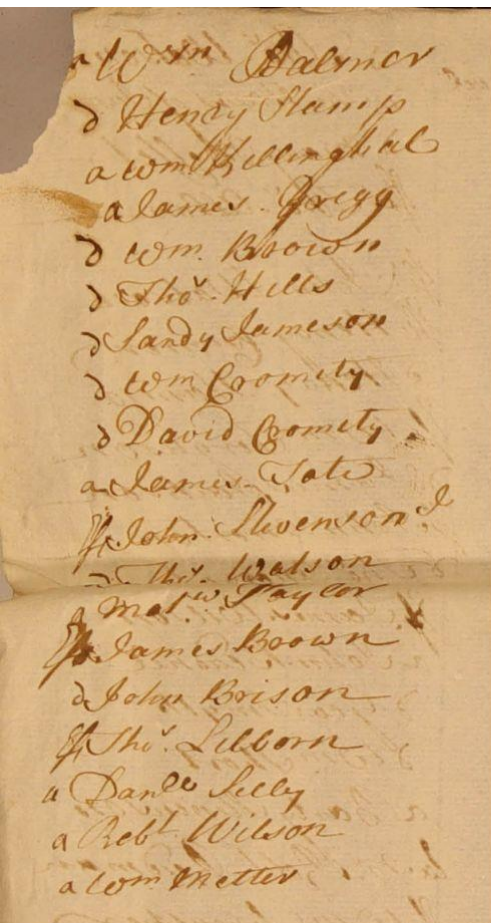 a Wm Palmer
d Henry Stamp
a Wm Hillinghal
a James Gregg
d Wm. Brown
d Thos. Hills
d Sandy Jameson
d Wm Cromity
d David Cromity
a James Tate
John Stevenson
d Thos. Watson
a Matw Taylor
James Brown
d John Brison
Thos. Lilborn
a Danll Selly
a Robt Wilson
a Wm Metter